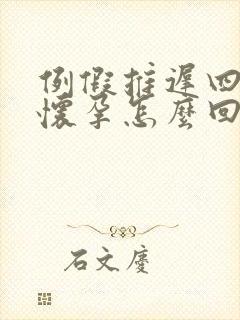 例假推遲四
懷孕怎麼回
石文慶